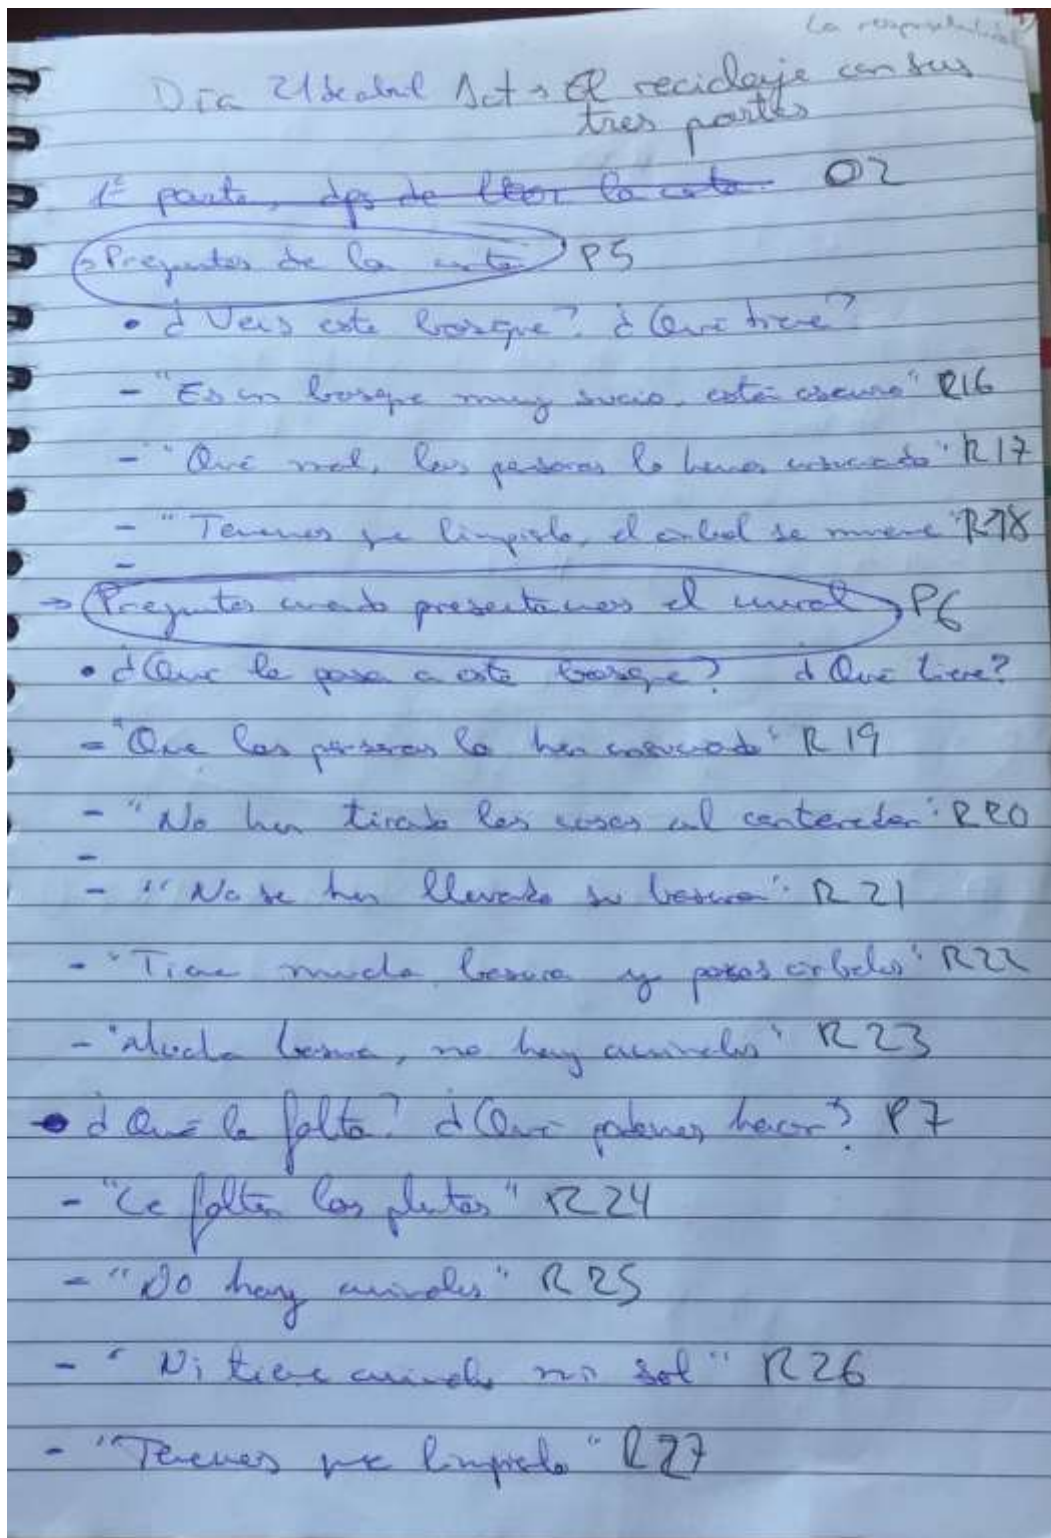 La responsabilidad
Día 21 de abril Act → El reciclaje con sus
tres partes
1ª parte, dps de leer la carta. O2
→ Preguntas de la carta P5
• ¿Veis este bosque? ¿Qué tiene?
- "Es un bosque muy sucio, está oscuro" R16
- "Qué mal, las personas lo hemos ensuciado" R17
- "Tenemos que limpiarlo, el árbol se muere" R18
-
→ Preguntas cuando presentamos el mural P6
• ¿Qué le pasa a este bosque? ¿Qué tiene?
- "Que las personas lo han ensuciado" R19
- "No han tirado las cosas al contenedor" R20
-
- "No se han llevado su basura" R21
- "Tiene mucha basura y pocos árboles" R22
- "Mucha basura, no hay animales" R23
• ¿Qué le falta? ¿Qué podemos hacer? P7
- "Le faltan las plantas" R24
- "No hay animales" R25
- "Ni tiene animales ni sol" R26
- "Tenemos que limpiarlo" R27